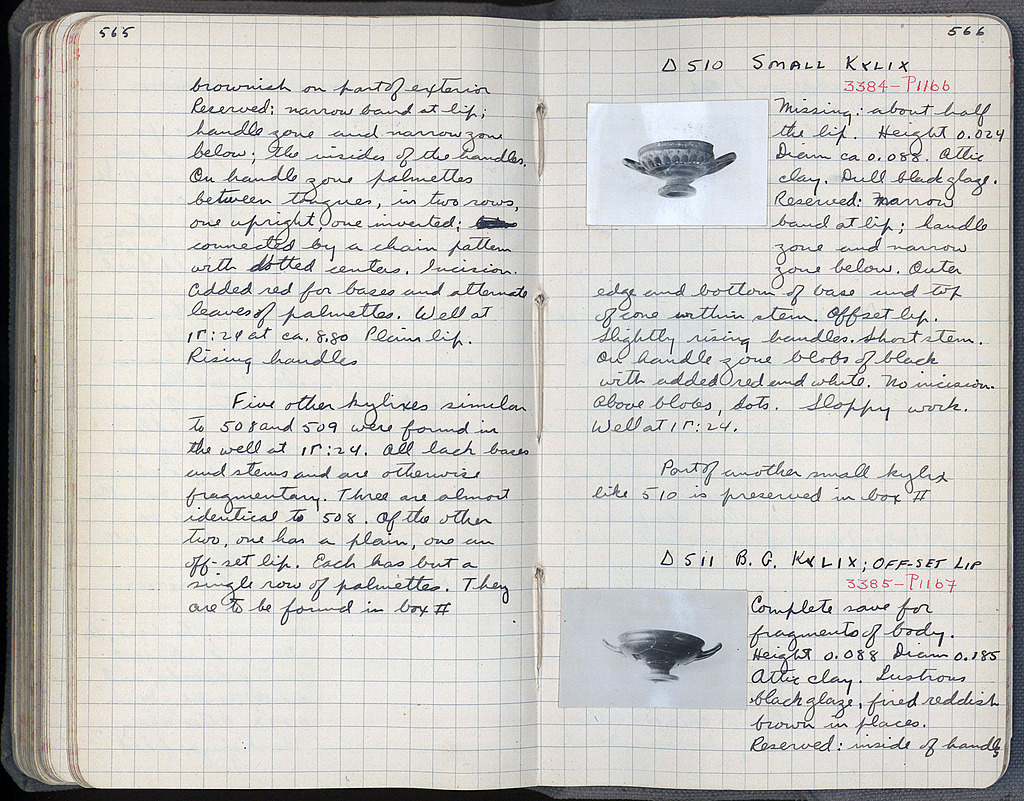 565
brownish on part of exterior
Reserved: narrow band at lip;
handle zone and narrow zone
below; the insides of the handles.
On handle zone palmettes
between tongues, in two rows,
one upright, one inverted;
connected by a chain pattern
with dotted centers. Incision.
Added red for bases and alternate
leaves of palmettes. Well at
ΙΓ:24 at ca. 8.80 Plain lip.
Rising handles
Five other kylixes similar
to 508 and 509 were found in
the well at ΙΓ:24. All lack bases
and stems and are otherwise
fragmentary. Three are almost
identical to 508. Of the other
two, one has a plain, one an
off-set lip. Each has but a
single row of palmettes. They
are to be found in box #
566
Δ 510 SMALL KYLIX
3384-P1166
Missing: about half
the lip. Height 0.024
Diam ca 0.088. Attic
clay. Dull black glaze.
Reserved: Narrow
band at lip; handle
zone and narrow
zone below. Outer
edge and bottom of base and top
of cone within stem. Offset lip.
Slightly rising handles. Short stem.
On handle zone blobs of black
with added red and white. No incision.
Above blobs, dots. Sloppy work.
Well at ΙΓ:24.
Part of another small kylix
like 510 is preserved in box #
Δ 511 B. G. KYLIX; OFF-SET LIP
3385-P1167
Complete save for
fragments of body.
Height 0.088 Diam 0.185
Attic clay. Lustrous
black glaze, fired reddish
brown in places.
Reserved: inside of handles